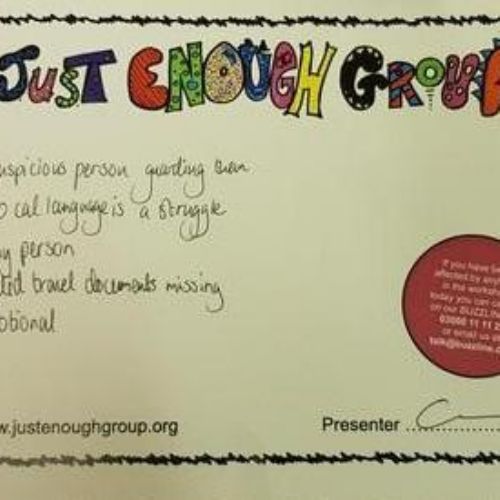 JUST ENOUGH GROUP
uspicious person guarding them
cal language is a struggle
person
travel documents missing
otional
If you have
affected by
in the
today you can
on our BUZZLI
03000 11 11
or email us
talk@buzzline.c
w.justenoughgroup.org
Presenter